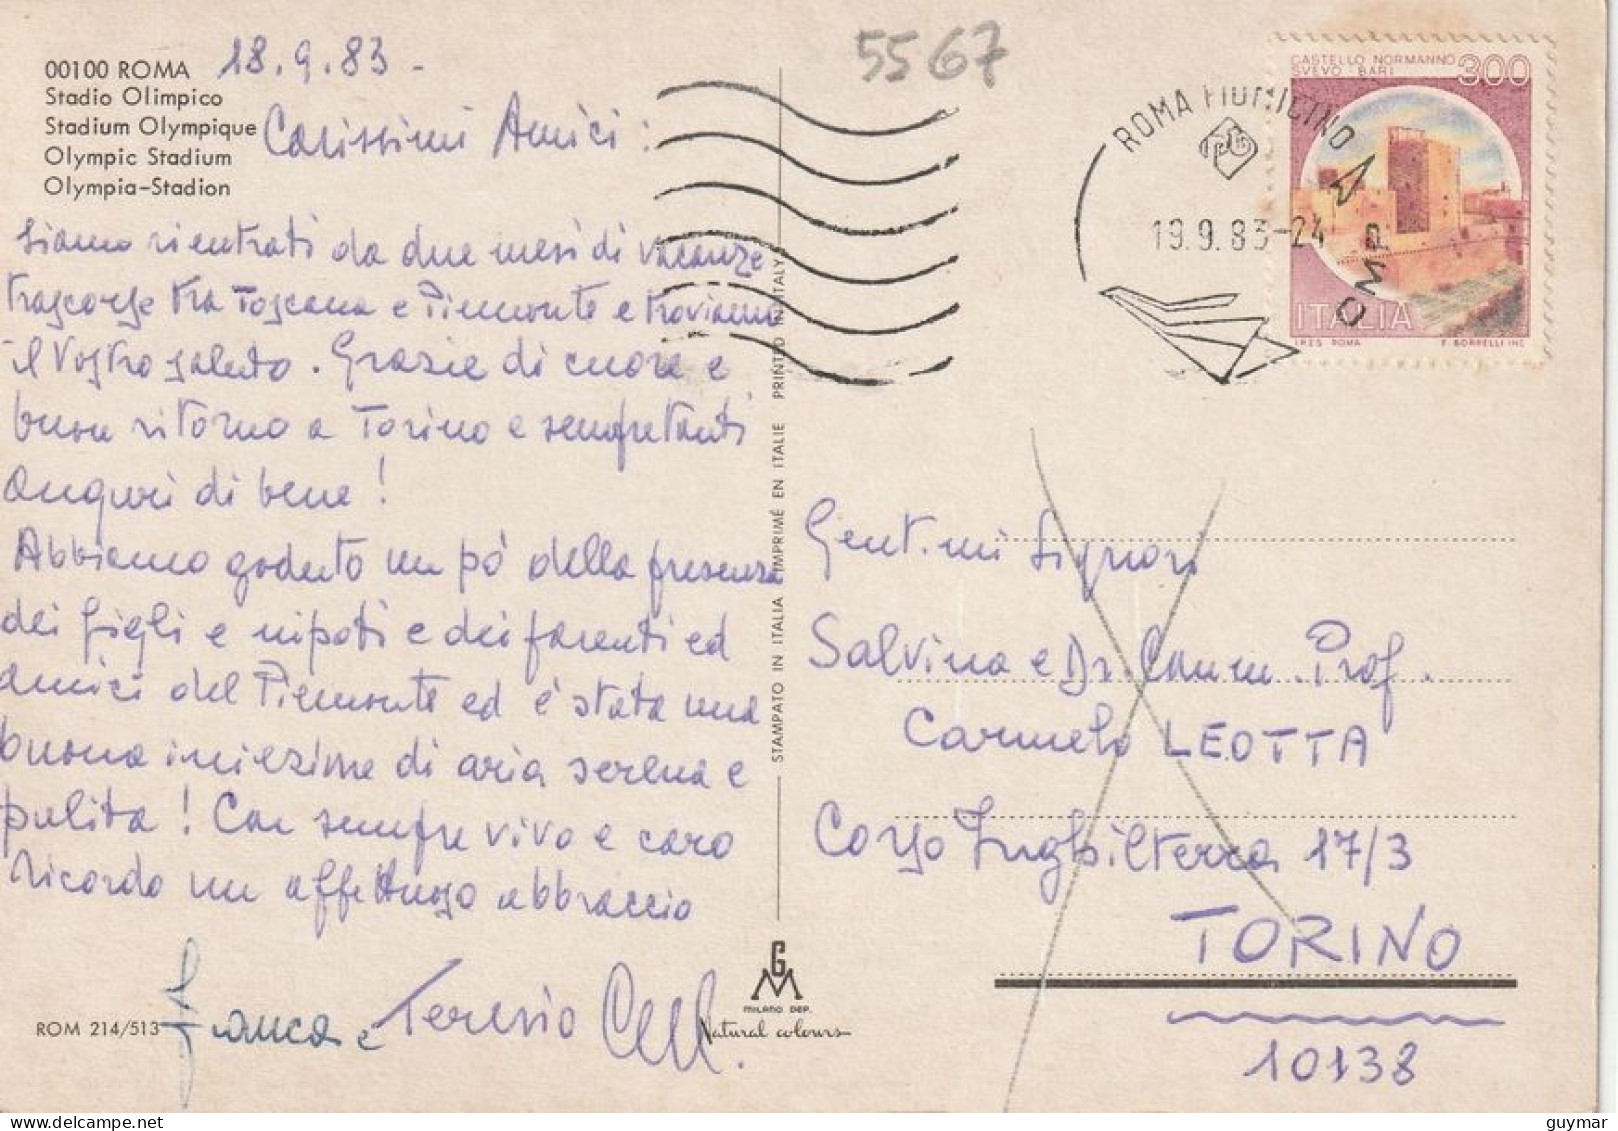 00100 ROMA
Stadio Olimpico
Stadium Olympique
Olympic Stadium
Olympia-Stadion
18.9.83 -
Carissimi Amici:
Siamo rientrati da due mesi di vacanze
trascorse tra Toscana e Piemonte e troviamo
il Vostro saluto. Grazie di cuore e
buon ritorno a Torino e sempre tanti
auguri di bene!
Abbiamo goduto un pò della presenza
dei figli e nipoti e dei parenti ed
amici del Piemonte ed è stata una
buona iniezione di aria serena e
pulita! Con sempre vivo e caro
ricordo un affettuoso abbraccio
Franca e Teresio
ROM 214/513
STAMPATO IN ITALIA IMPRIMÉ EN ITALIE PRINTED IN ITALY
GM
MILANO DEP.
Natural colours
5567
ROMA FIUMICINO
19.9.83-24
CASTELLO NORMANNO
SVEVO - BARI
300
ITALIA
I.P.Z.S. ROMA F. BORRELLI INC.
Gent.mi Signori
Salvina e Dr. Comm. Prof.
Carmelo LEOTTA
Corso Inghilterra 17/3
TORINO
10138
guymar